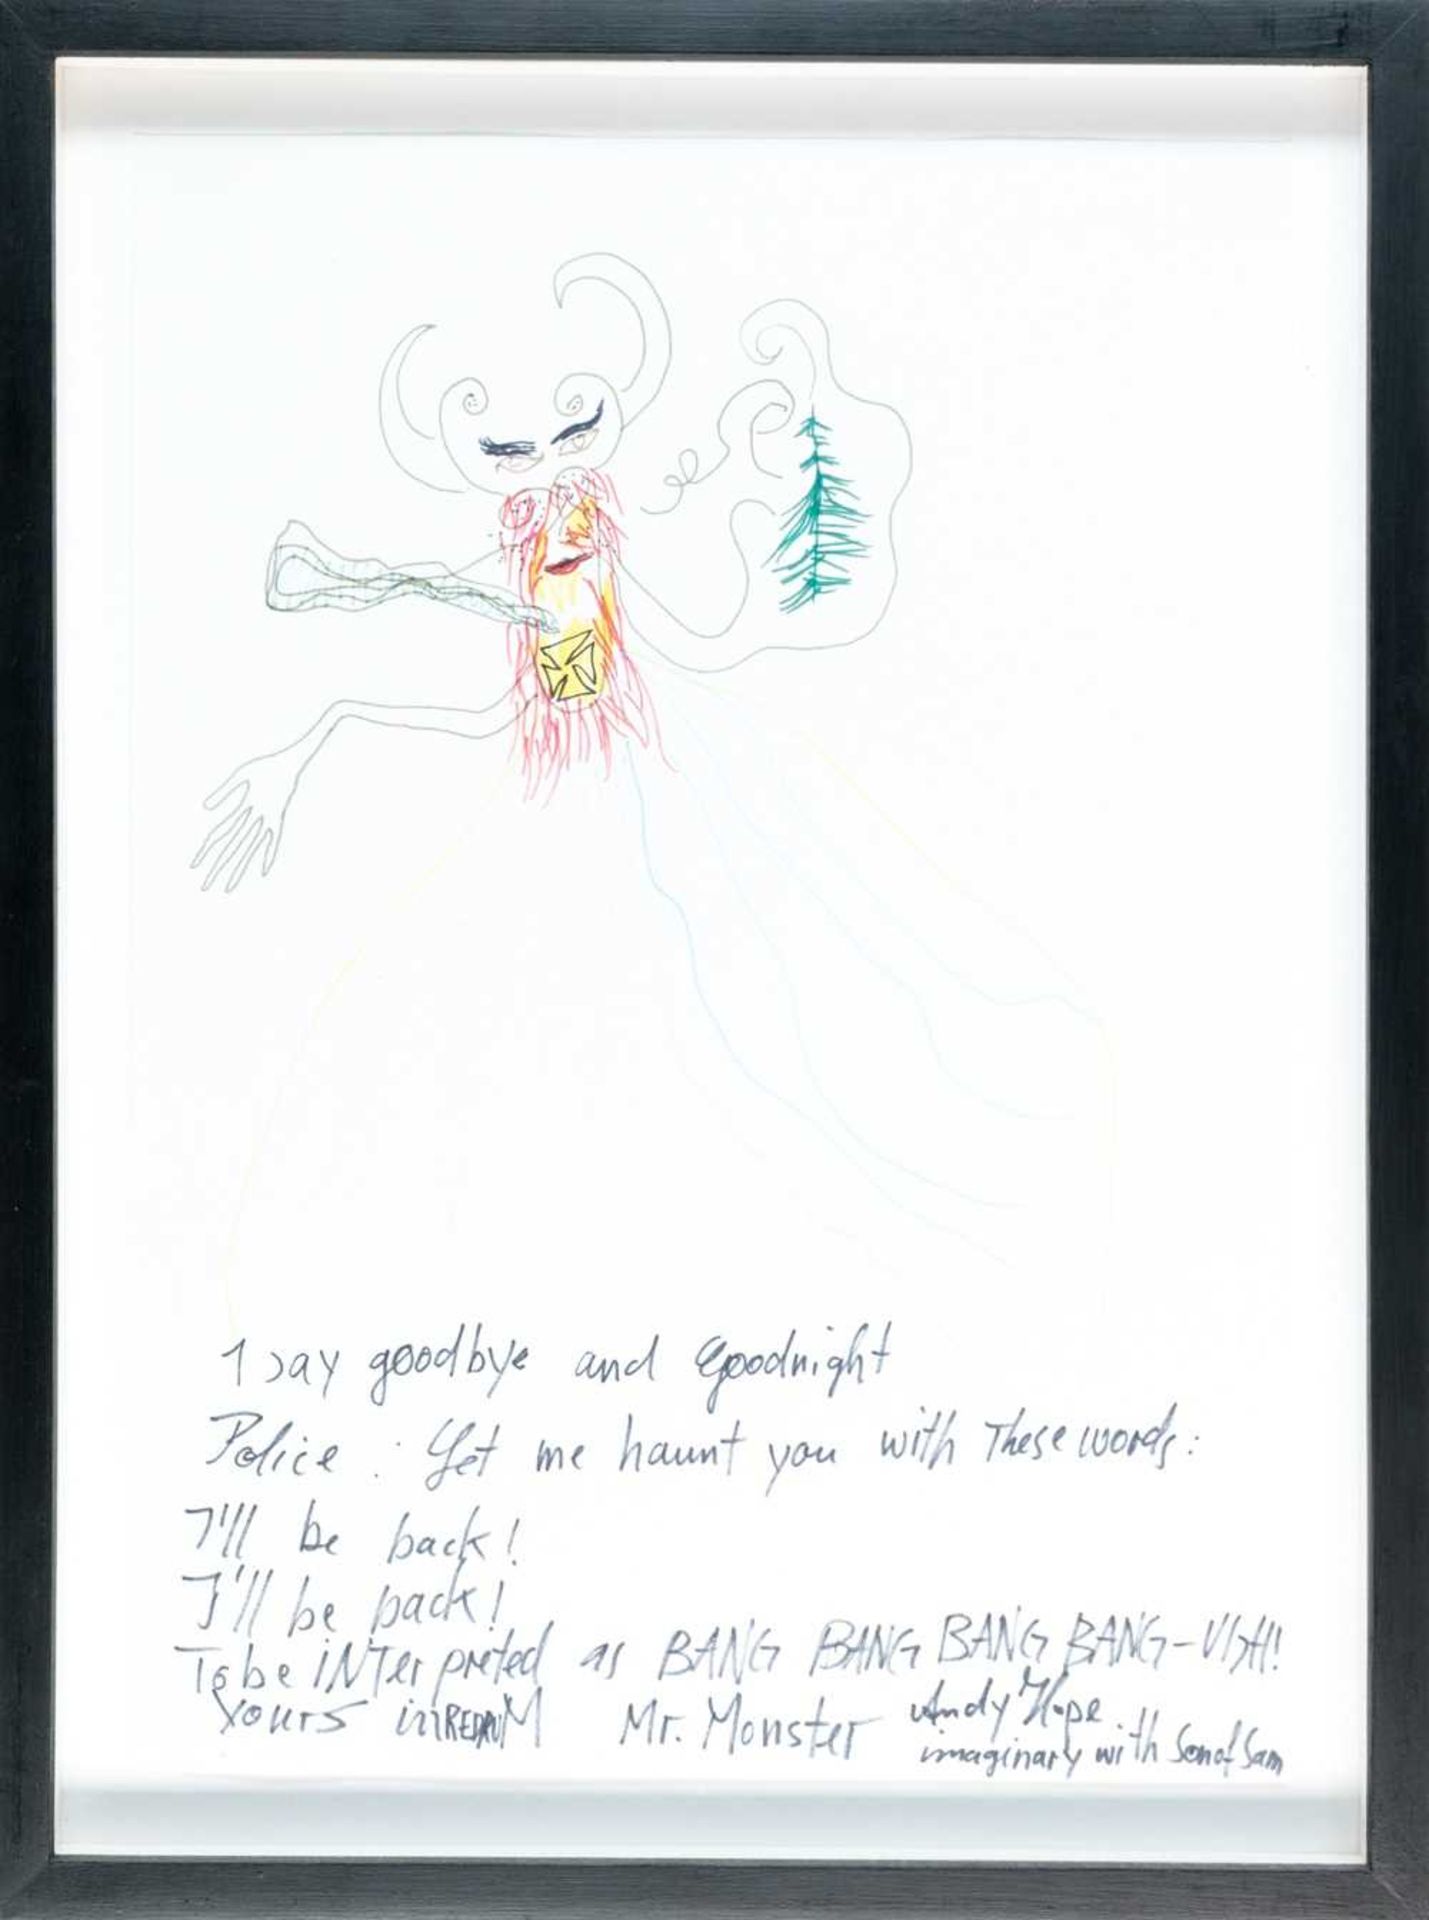 I say goodbye and Goodnight
Police : Let me haunt you with These words:
I'll be back!
I'll be back!
To be iNTerpreted as BANG BANG BANG BANG - UGH!
Yours inREDRUM Mr. Monster Andy Hope
imaginary with Son of Sam